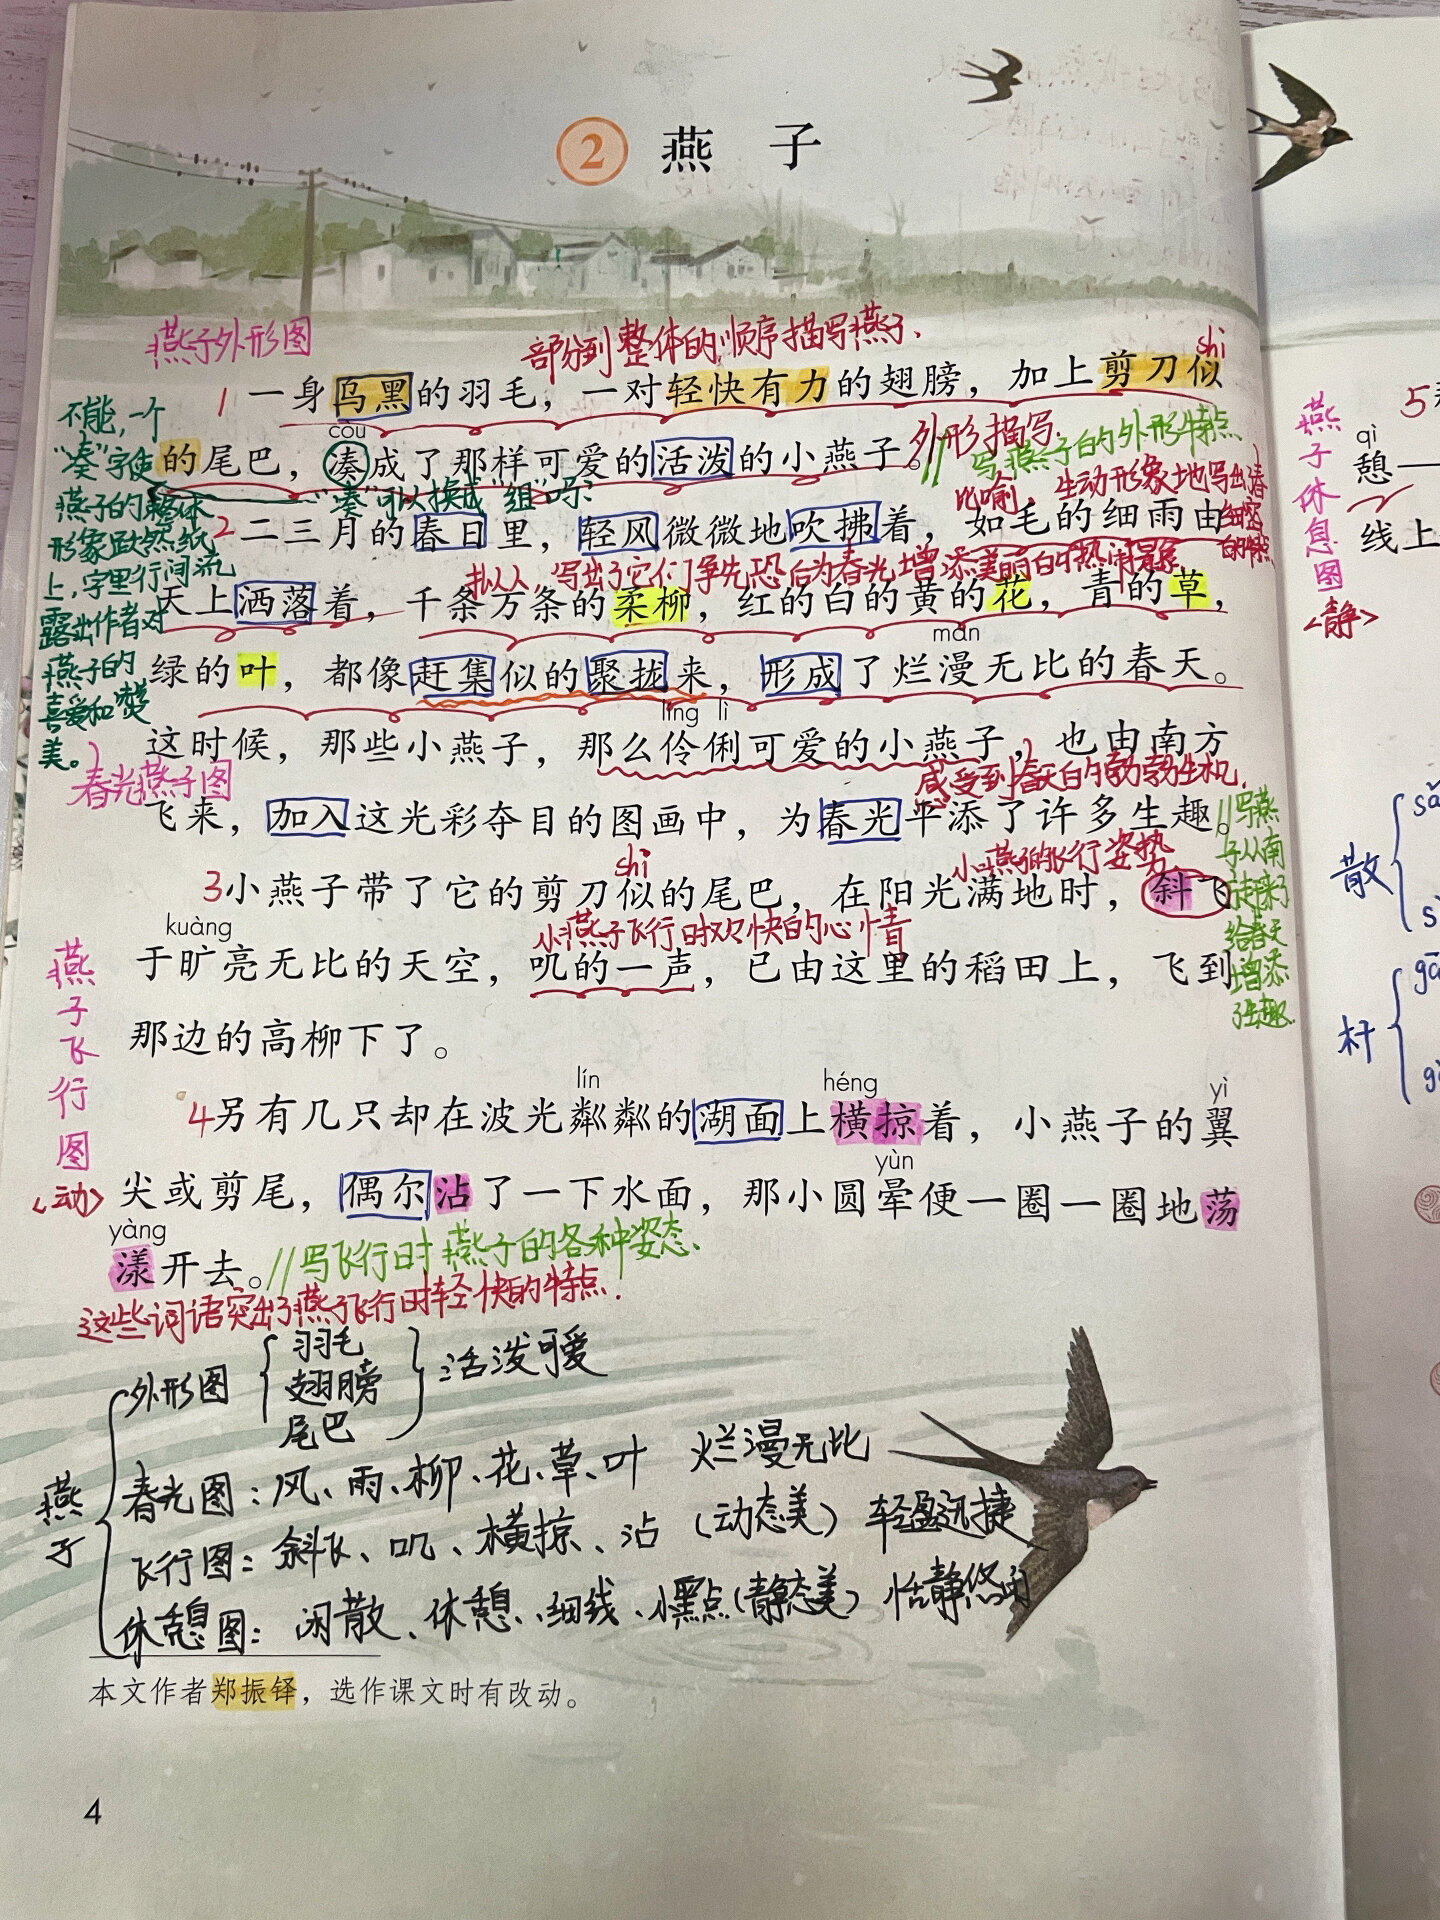 2 燕子
燕子外形图
部分到整体的顺序描写燕子.
shì
1 一身乌黑的羽毛，一对轻快有力的翅膀，加上剪刀似
不能,一个
"凑"字使
燕子的整体
形象跃然纸
上,字里行间流
露出作者对
燕子的
喜爱和赞
美。
còu
的尾巴，凑成了那样可爱的活泼的小燕子。
外形描写.
//写燕子的外形特点
"凑"可以换成"组"吗?
比喻,生动形象地写出春
2 二三月的春日里，轻风微微地吹拂着，如毛的细雨由
拟人,写出了它们争先恐后为春光增添美丽的热闹景象.
天上洒落着，千条万条的柔柳，红的白的黄的花，青的草，
màn
绿的叶，都像赶集似的聚拢来，形成了烂漫无比的春天。
líng lì
这时候，那些小燕子，那么伶俐可爱的小燕子，也由南方
春光燕子图
感受到春天的勃勃生机.
飞来，加入这光彩夺目的图画中，为春光平添了许多生趣。
//写燕
子从南
给春天
增添
生趣.
shì
小燕子的飞行姿势
3 小燕子带了它的剪刀似的尾巴，在阳光满地时，斜飞
kuàng
小燕子飞行时欢快的心情
于旷亮无比的天空，叽的一声，已由这里的稻田上，飞到
那边的高柳下了。
燕子飞行图
<动>
lín héng yì
4 另有几只却在波光粼粼的湖面上横掠着，小燕子的翼
yùn
尖或剪尾，偶尔沾了一下水面，那小圆晕便一圈一圈地荡
yàng
漾开去。
//写飞行时燕子的各种姿态.
这些词语突出了燕子飞行时轻快的特点.
燕子
外形图 羽毛 翅膀 尾巴 活泼可爱
春光图:风、雨、柳、花、草、叶 烂漫无比
飞行图:斜飞、叽、横掠、沾 (动态美) 轻盈迅捷
休憩图: 闲散、休憩、细线、小黑点(静态美) 恬静悠闲
本文作者郑振铎，选作课文时有改动。
4
燕子休息图
<静>
5
qì
憩一
线上
散
杆